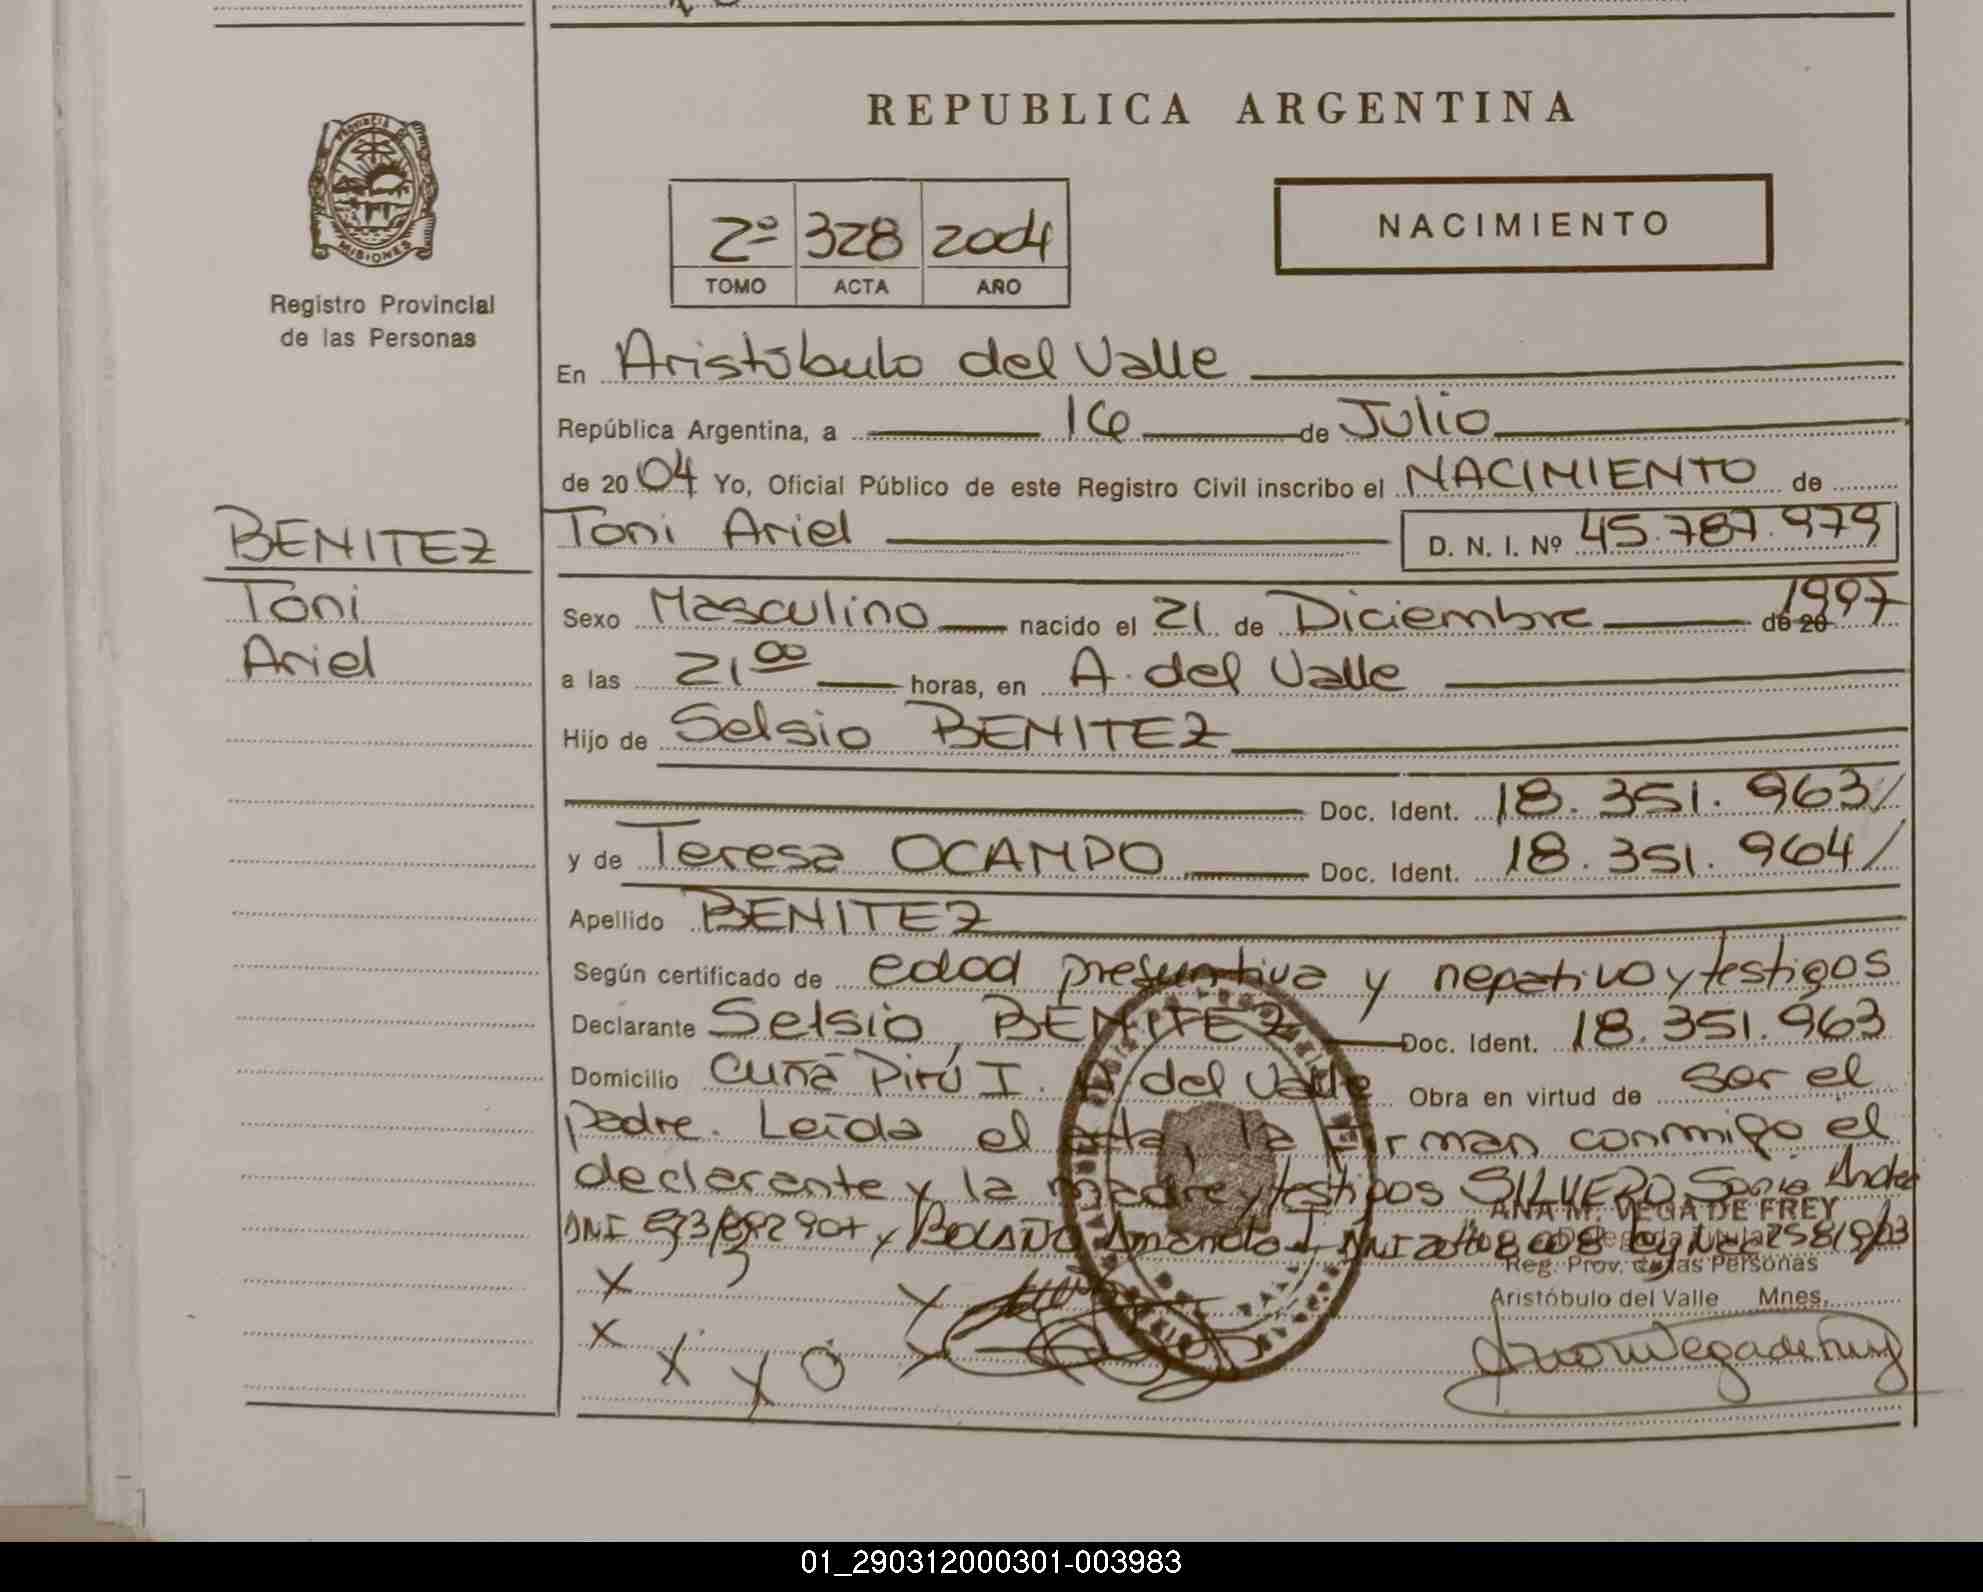 REPUBLICA ARGENTINA
PROVINCIA DE MISIONES
Registro Provincial
de las Personas
2º 328 2004
TOMO ACTA AÑO
NACIMIENTO
En Aristóbulo del Valle
República Argentina, a 16 de Julio
de 2004 Yo, Oficial Público de este Registro Civil inscribo el NACIMIENTO de
BENITEZ
Toni
Ariel
Toni Ariel D. N. I. Nº 45.787.979
Sexo Masculino nacido el 21 de Diciembre de 20 1997
a las 21 00 horas, en A. del Valle
Hijo de Selsio BENITEZ
Doc. Ident. 18.351.963/
y de Teresa OCAMPO Doc. Ident. 18.351.964/
Apellido BENITEZ
Según certificado de edad presuntiva y negativo y testigos
Declarante Selsio BENITEZ Doc. Ident. 18.351.963
Domicilio Cuñá Pirú I. A. del Valle Obra en virtud de ser el
padre. Leída el acta, la firman conmigo el
declarante y la madre y testigos SILVERO Sonia
DNI y Amando DNI
ANA M. VEGA DE FREY
Delegada Titular
Reg. Prov. de las Personas
Aristóbulo del Valle Mnes.
01_290312000301-003983